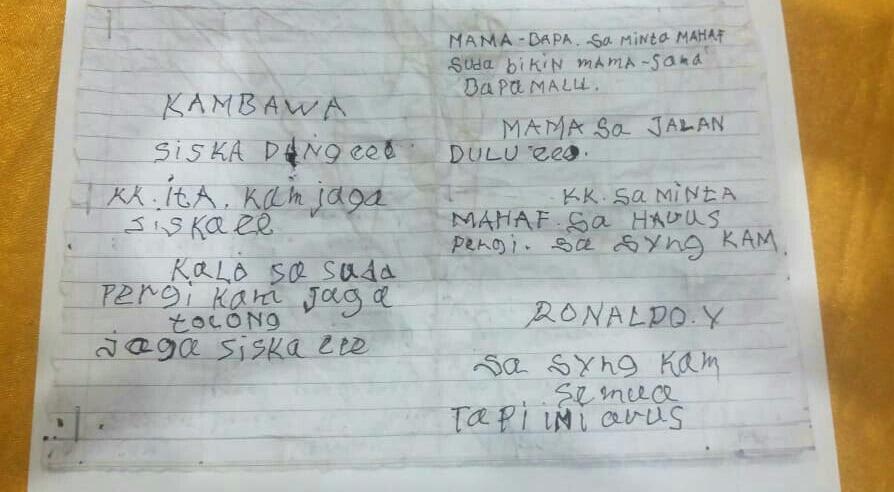 KAMBAWA
SiSKA DiNG eee
KK. itA. Kam jaga
SiSKa ee
KaLo sa suda
Pergi Kam Jaga
toLONG
Jaga SiSKa eee
MAMA-BAPA. Sa MiNta MAHAF
Suda biKiN mama-Sama
BaPa MALU.
MAMA Sa JALAN
DULU eeo.
KK. Sa MiNtA
MAHAF. Sa HARUS
Pergi. Sa SYng KAM
RONALDO.Y
Sa SYng Kam
Semua
TaPi iNi arus